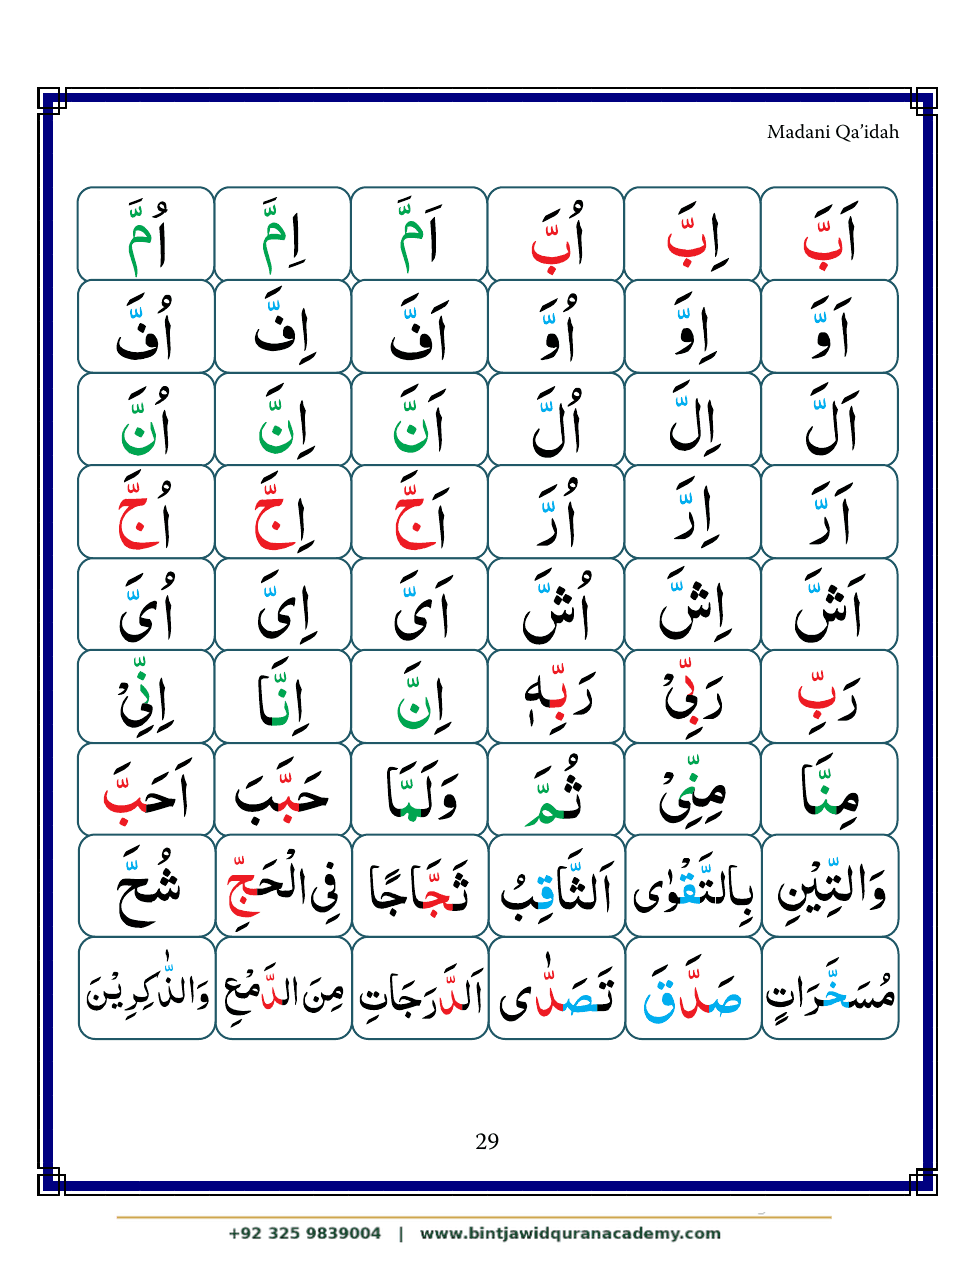 Madani Qa’idah
اَبَّ اِبَّ اُبَّ اَمَّ اِمَّ اُمَّ
اَوَّ اِوَّ اُوَّ اَفَّ اِفَّ اُفَّ
اَلَّ اِلَّ اُلَّ اَنَّ اِنَّ اُنَّ
اَرَّ اِرَّ اُرَّ اَجَّ اِجَّ اُجَّ
اَشَّ اِشَّ اُشَّ اَیَّ اِیَّ اُیَّ
رَبِّ رَبِّیْ رَبِّهٖ اِنَّ اِنَّا اِنِّیْ
مِنَّا مِنِّیْ ثُمَّ وَلَمَّا حَبَّبَ اَحَبَّ
وَالتِّیْنِ بِالتَّقْوٰی اَلثَّاقِبُ ثَجَّاجًا فِی الْحَجِّ شُحَّ
مُسَخَّرَاتٍ صَدَّقَ تَصَدّٰی اَلدَّرَجَاتِ مِنَ الدَّمْعِ وَالذّٰکِرِیْنَ
29
+92 325 9839004 | www.bintjawidquranacademy.com